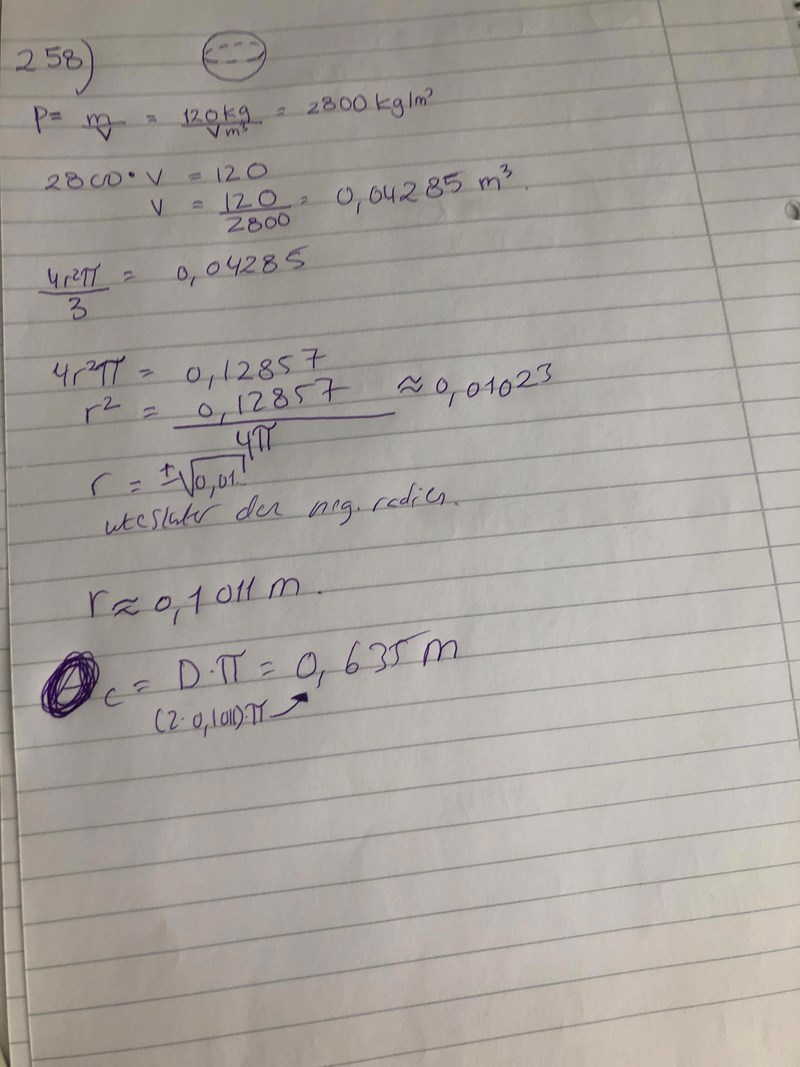 258)
P= m/V = 120kg/Vm³ = 2800 kg/m³
2800 · V = 120
V = 120/2800 = 0,04285 m³.
4r²π/3 = 0,04285
4r²π = 0,12857
r² = 0,12857/4π ≈ 0,01023
r = ±√0,01..
utesluter den neg. radien.
r ≈ 0,1011 m.
c = D·π = 0,635 m
(2·0,1011)·π